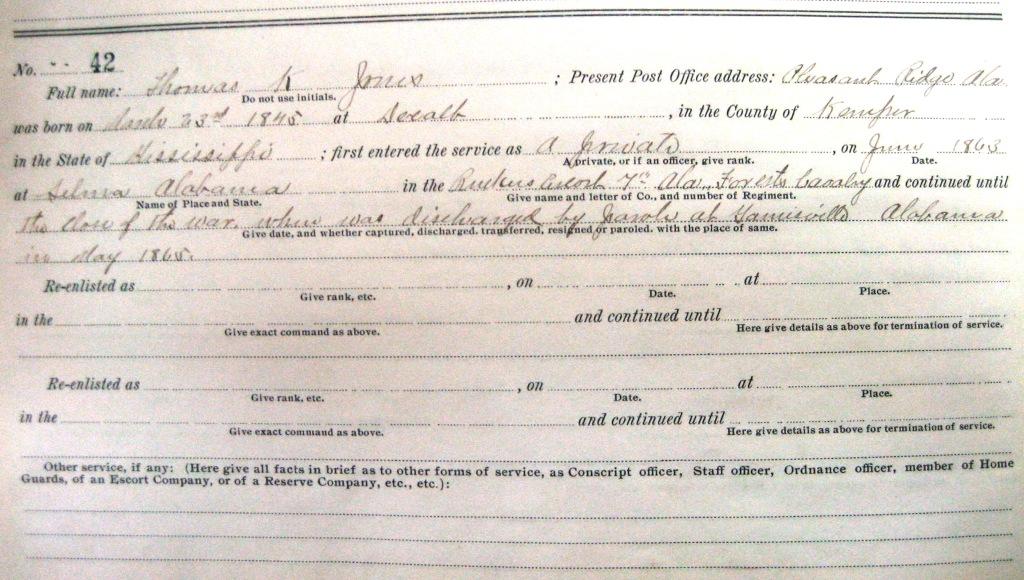 No. 42
Full name: Thomas K Jones ; Present Post Office address: Pleasant Ridge Ala
Do not use initials.
was born on March 23rd 1845 at Decalb , in the County of Kemper
in the State of Mississippi ; first entered the service as A Private , on June 1863
A private, or if an officer, give rank. Date.
at Selma Alabama in the Ruckers Escort 7th Ala. Forests Cavalry and continued until
Name of Place and State. Give name and letter of Co., and number of Regiment.
the close of the war, when was discharged by parole at Gainesville Alabama
Give date, and whether captured, discharged, transferred, resigned or paroled, with the place of same.
in May 1865.
Re-enlisted as , on at
Give rank, etc. Date. Place.
in the and continued until
Give exact command as above. Here give details as above for termination of service.
Re-enlisted as , on at
Give rank, etc. Date. Place.
in the and continued until
Give exact command as above. Here give details as above for termination of service.
Other service, if any: (Here give all facts in brief as to other forms of service, as Conscript officer, Staff officer, Ordnance officer, member of Home
Guards, of an Escort Company, or of a Reserve Company, etc., etc.):